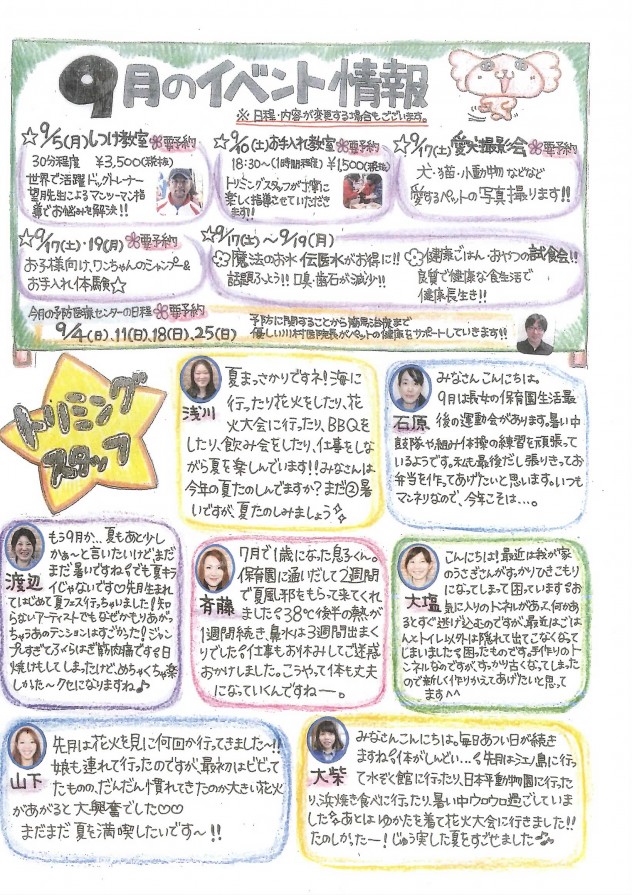 9月のイベント情報
※日程・内容が変更する場合もございます。
☆9/5(月)しつけ教室 要予約
30分程度 ¥3,500(税抜)
世界で活躍ドッグトレーナー
望月先生によるマンツーマン指
導でお悩みを解決!!
☆9/10(土)お手入れ教室 要予約
18:30〜(1時間程度)¥1,500(税抜)
トリミングスタッフが丁寧に
楽しく指導させていただき
ます!!
☆9/17(土)愛犬撮影会 要予約
犬・猫・小動物などなど
愛するペットの写真撮ります!!
☆9/17(土)・19(月) 要予約
お子様向け、ワンちゃんのシャンプー&
お手入れ体験☆
☆9/17(土)〜9/19(月)
魔法のお水 伝医水がお得に!!
話題ふよう!! 口臭・歯石が減少!!
健康ごはん・おやつの試食会!!
良質で健康な食生活で
健康長生き!!
今月の予防医療センターの日程 要予約
9/4(日)、11(日)、18(日)、25(日)
予防に関することから簡易治療まで
優しい川村医院長がペットの健康をサポートしていきます!!
トリミング
スタッフ
浅川
夏まっさかりですネ!海に
行ったり花火をしたり、花
火大会に行ったり、BBQを
したり、飲み会をしたり、仕事をしな
がら夏を楽しんでいます!!みなさんは、
今年の夏たのしんでますか?まだ②暑
いですが、夏たのしみましょう
石原
みなさんこんにちは。
9月は長女の保育園生活最
後の運動会があります。暑い中
鼓隊や組み体操の練習を頑張って
いるようです。私も最後だし張りきってお
弁当を作ってあげたいと思います。いつも
マンネリなので、今年こそは…。
渡辺
もう9月か…夏もあと少し
かぁ〜と言いたいけど、まだ
まだ暑いですね!でも夏キラ
イじゃないです♡先月生まれ
てはじめて夏フェス行っちゃいました!知
らないアーティストでもなぜかもりあがっ
ちゃうあのテンションはすごかった!ジャン
プしすぎてふくらはぎ筋肉痛です!!日
焼けもしてしまったけど、めちゃくちゃ楽
しかった〜クセになりますね♪
斉藤
7月で1歳になった息子くん。
保育園に通いだして2週間
で夏風邪をもらって来てくれ
ました。38℃後半の熱が
1週間続き、鼻水は3週間出まく
りでした。仕事もお休みしてご迷惑
おかけしました。こうやって体も丈夫
になっていくんですねー。
大塩
こんにちは!最近は我が家
のうさぎさんがすっかりひきこもり
になってしまって困っています。お
気に入りのトンネルがあって、何かあ
るとすぐ逃げ込むのですが、最近はごは
んとトイレ以外は隠れて出てこなくなって
しまいました。困ったものです。手作りのト
ンネルなのですが、すっかり古くなってしまった
ので新しく作りかえてあげたいと思って
ます^^
山下
先月は花火を見に何回か行ってきました〜!!
娘も連れて行ったのですが、最初はビビって
たものの、だんだん慣れてきたのか大きい花火
があがると大興奮でした♡♡
まだまだ夏を満喫したいです〜!!
大柴
みなさんこんにちは。毎日あつい日が続き
ますね!体がしんどい…!先月は江ノ島に行っ
て水ぞく館に行ったり、日本平動物園に行った
り、浜焼き食べに行ったり、暑い中ウロウロ過ごしていま
した。あとはゆかたを着て花火大会に行きました!!
たのしかったー!じゅう実した夏をすごせました♪